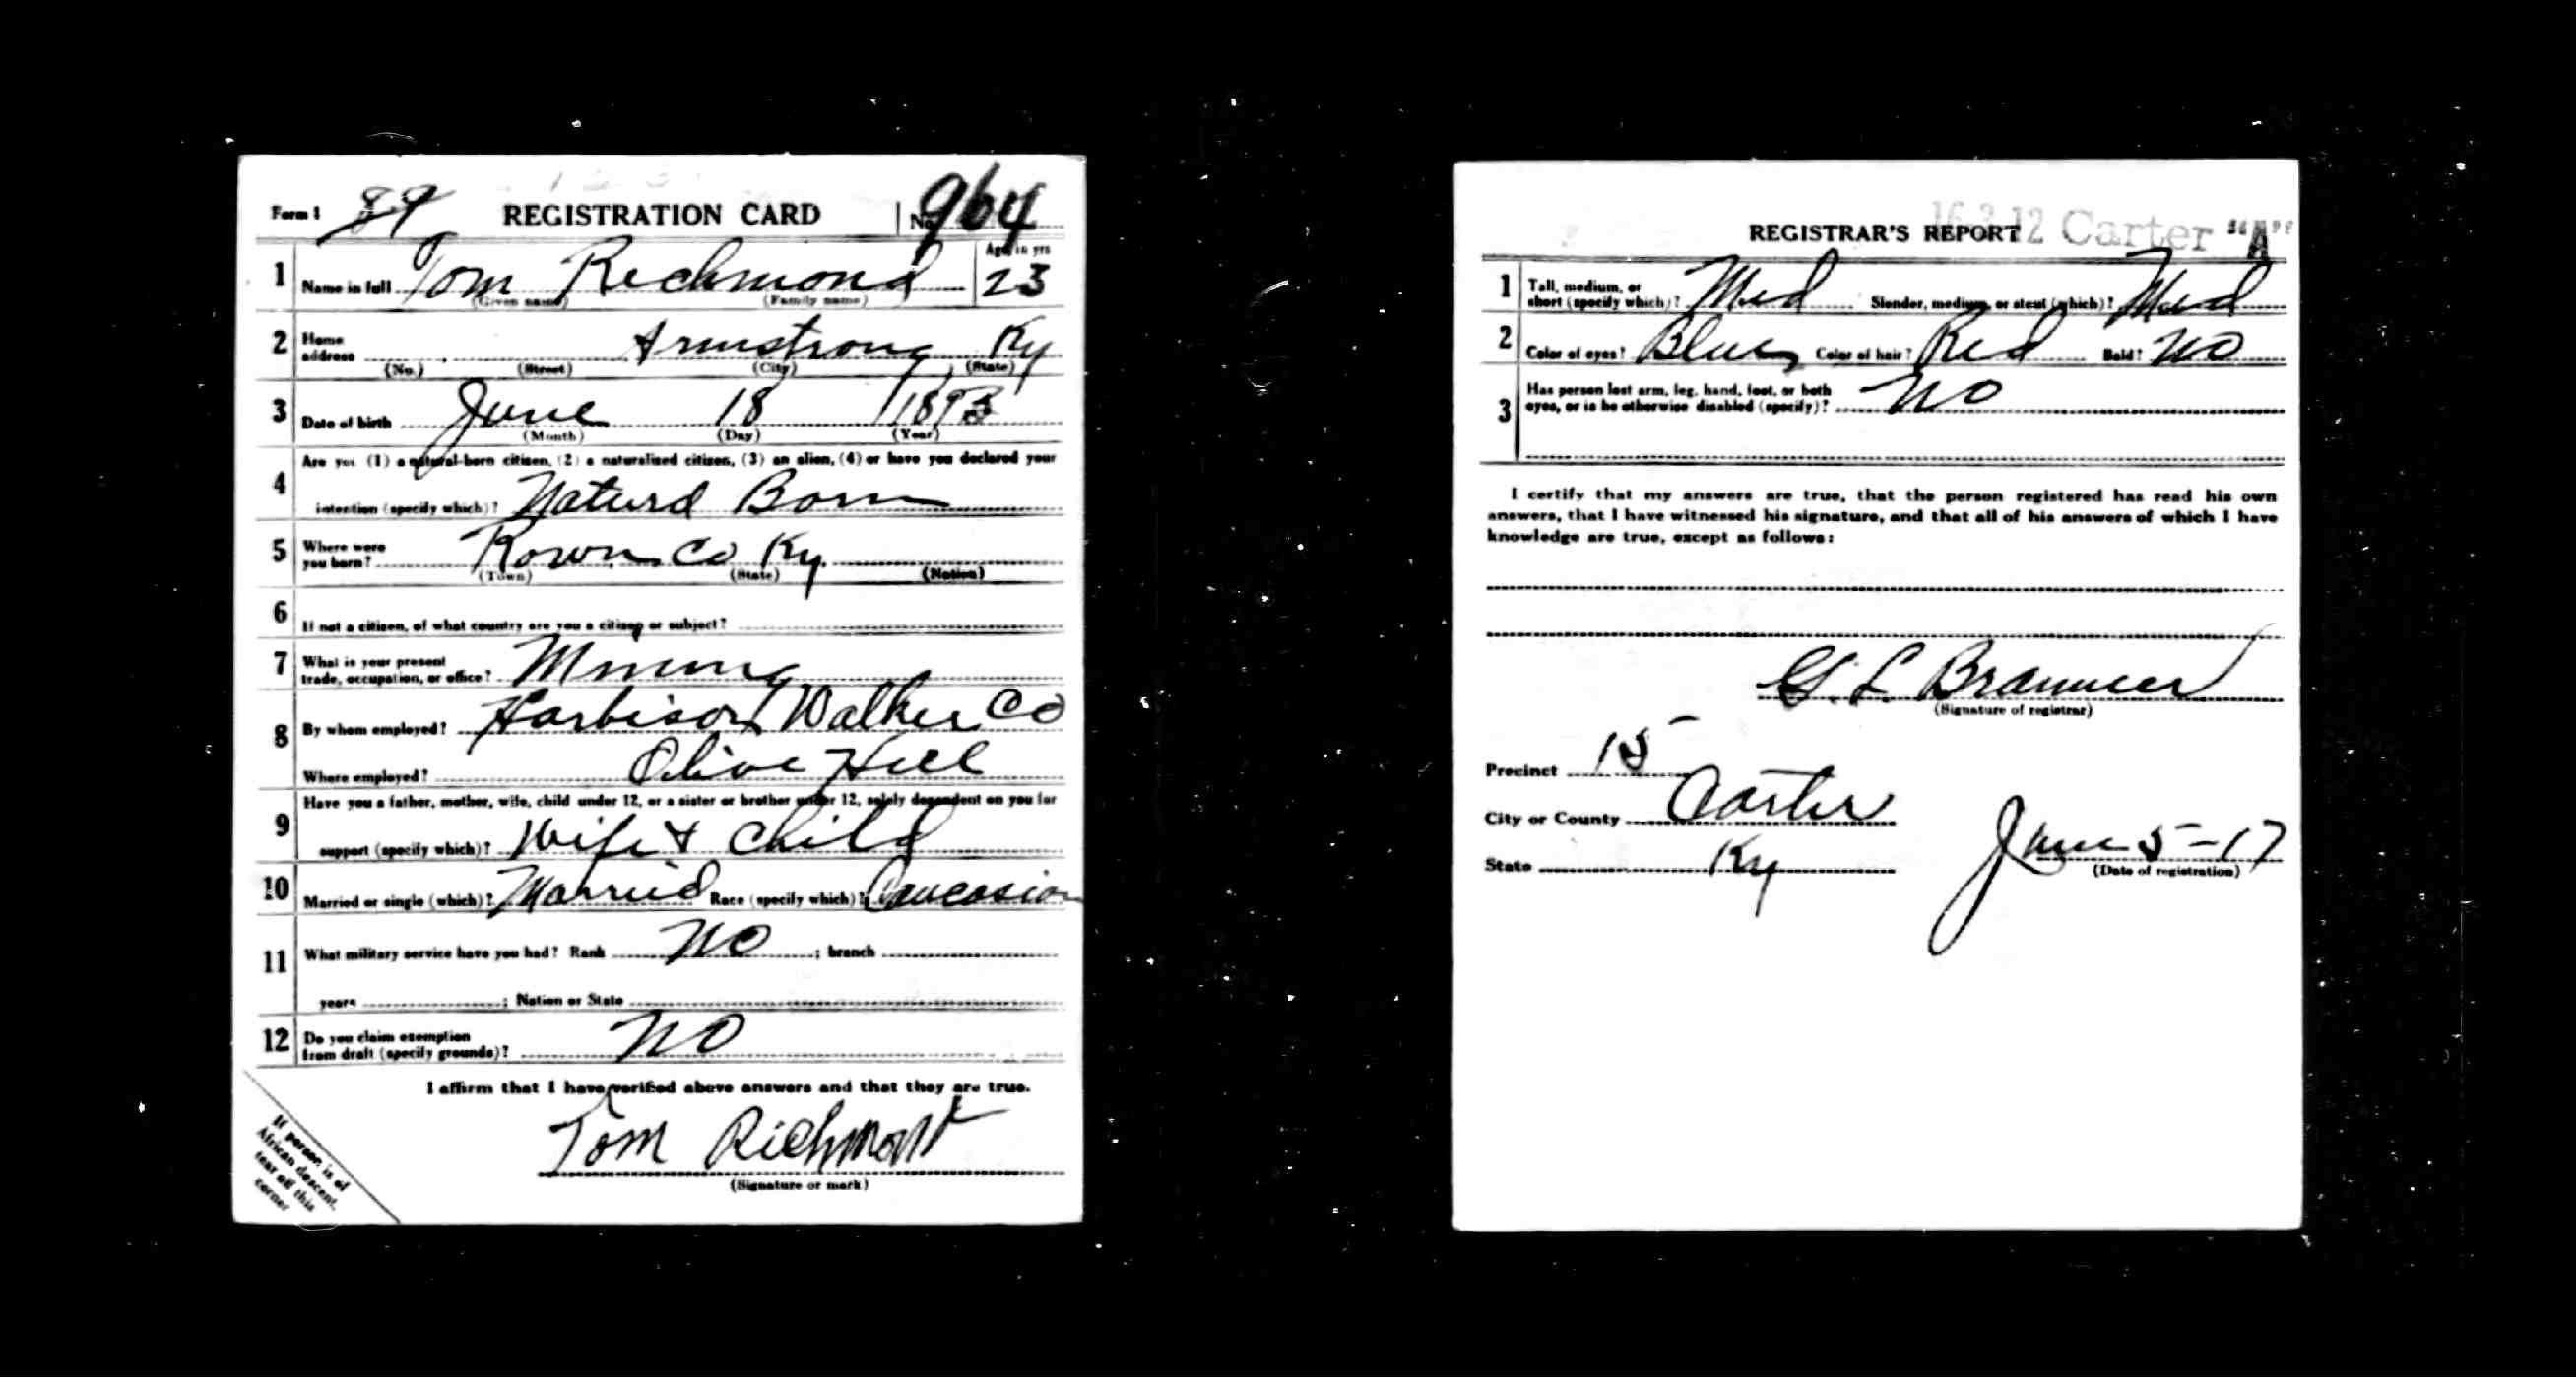 Form 1 89 REGISTRATION CARD No. 964
1 Name in full Tom Richmond Age, in yrs 23
(Given name) (Family name)
2 Home address Armstrong Ky
(No.) (Street) (City) (State)
3 Date of birth June 18 1893
(Month) (Day) (Year)
4 Are you (1) a natural-born citizen, (2) a naturalized citizen, (3) an alien, (4) or have you declared your
intention (specify which)? Naturd Born
5 Where were you born? Rown Co Ky.
(Town) (State) (Nation)
6 If not a citizen, of what country are you a citizen or subject?
7 What is your present trade, occupation, or office? Mining
8 By whom employed? Harbison Walker Co
Where employed? Olive Hill
9 Have you a father, mother, wife, child under 12, or a sister or brother under 12, solely dependent on you for
support (specify which)? Wife & Child
10 Married or single (which)? Married Race (specify which)? Caucasian
11 What military service have you had? Rank NO ; branch
years ; Nation or State
12 Do you claim exemption from draft (specify grounds)? NO
I affirm that I have verified above answers and that they are true.
Tom Richmont
(Signature or mark)
If person is of
African descent,
tear off this
corner
REGISTRAR'S REPORT 16 3 12 Carter "A"
1 Tall, medium, or short (specify which)? Med Slender, medium, or stout (which)? Med
2 Color of eyes? Blue Color of hair? Red Bald? NO
3 Has person lost arm, leg, hand, foot, or both
eyes, or is he otherwise disabled (specify)? NO
I certify that my answers are true, that the person registered has read his own
answers, that I have witnessed his signature, and that all of his answers of which I have
knowledge are true, except as follows:
G. L. Brammer
(Signature of registrar)
Precinct 15
City or County Carter
State Ky
June 5-17
(Date of registration)